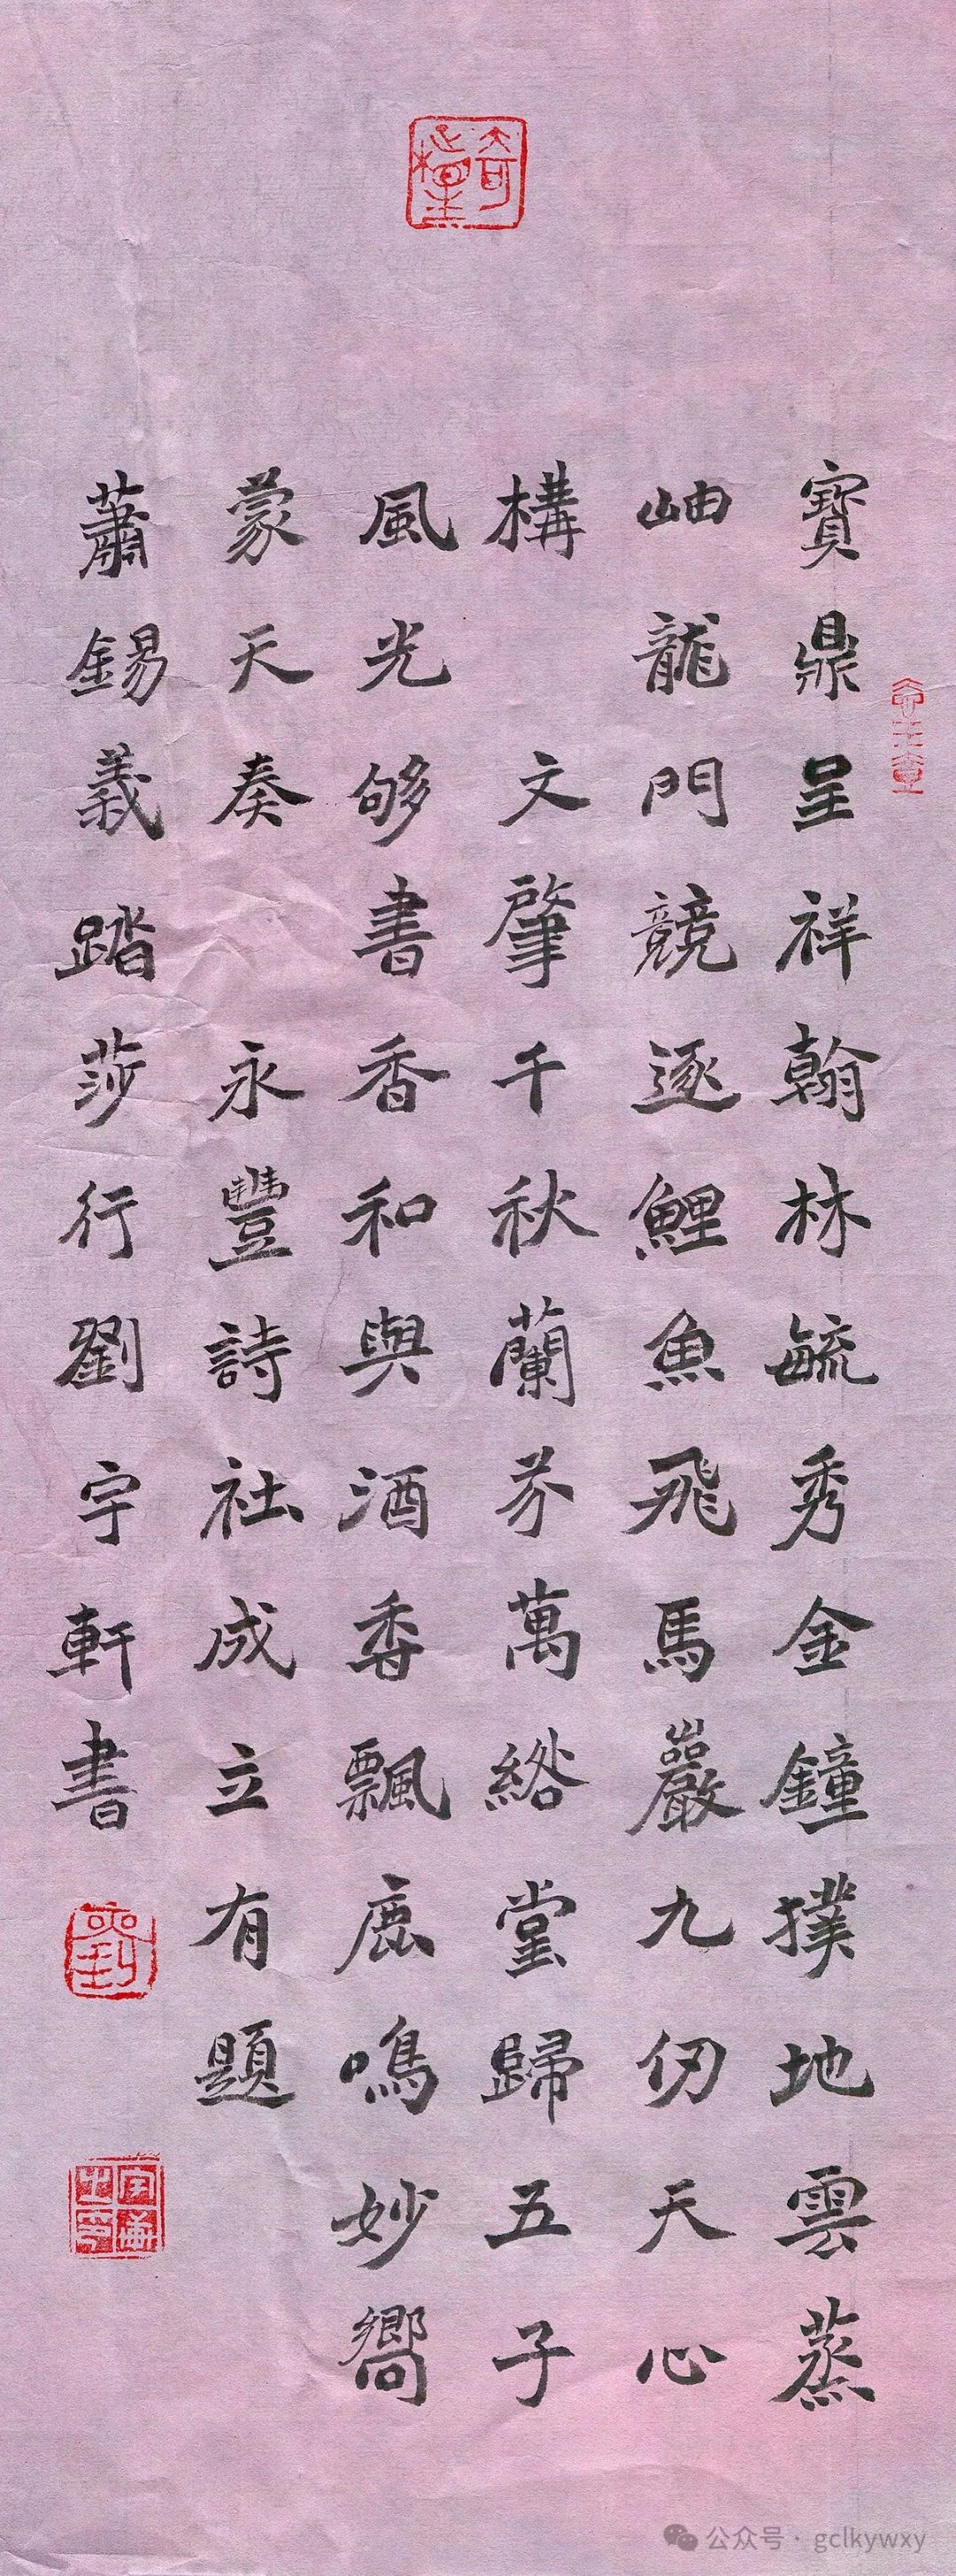 寶鼎呈祥翰林毓秀金鐘撲地雲蒸
岫龍門競逐鯉魚飛馬巖九仞天心
構 文肇千秋蘭芬萬綹堂歸五子
風光够書香和與酒香飄鹿鳴妙嚮
蒙天奏 永豐詩社成立有題
蕭錫義踏莎行劉宇軒書
公众号 · gclkywxy